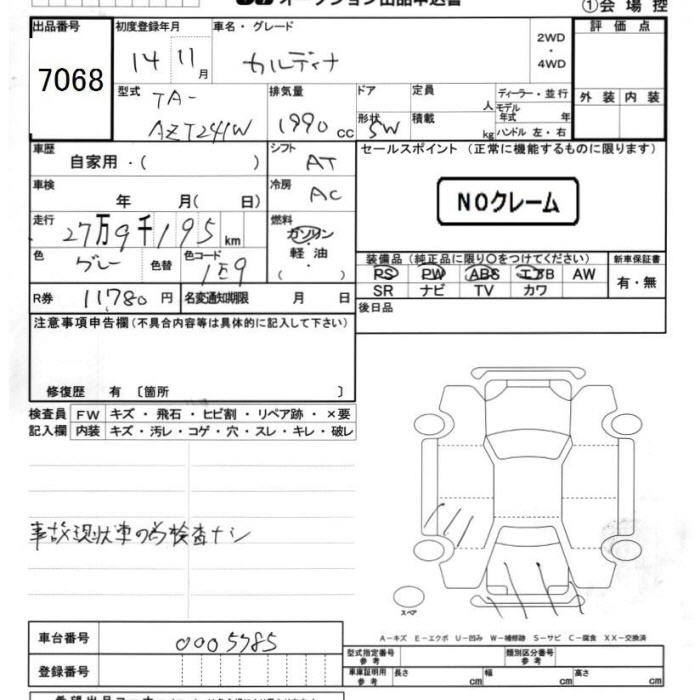 オークション出品申込書
①会場控
出品番号
7068
初度登録年月
14 11月
車名・グレード
カルディナ
2WD
・
4WD
評価点
外装 内装
型式
TA-
AZT241W
排気量
1990 cc
ドア
形状 SW
定員 人
積載 kg
ディーラー・並行
モデル年式 年
ハンドル 左・右
車歴
自家用・( )
シフト AT
セールスポイント (正常に機能するものに限ります)
NOクレーム
車検
年 月( 日)
冷房 AC
走行
27万9千195km
燃料
ガソリン・
軽油・
( )
色 グレー
色替
色コード 1E9
装備品(純正品に限り○をつけてください)
新車保証書
PS PW ABS エアB AW
SR ナビ TV カワ
有・無
R券 11780円
名変通知期限 月 日
後日品
注意事項申告欄(不具合内容等は具体的に記入して下さい)
修復歴 有〔箇所 〕
検査員記入欄
FW キズ・飛石・ヒビ割・リペア跡・×要
内装 キズ・汚レ・コゲ・穴・スレ・キレ・破レ
事故現状車の為検査ナシ
スペア
A-キズ E-エクボ U-凹み W-補修跡 S-サビ C-腐食 XX-交換済
車台番号 0005785
登録番号
型式指定番号参考
類別区分番号参考
車庫証明用参考 長さ cm 幅 cm 高さ cm